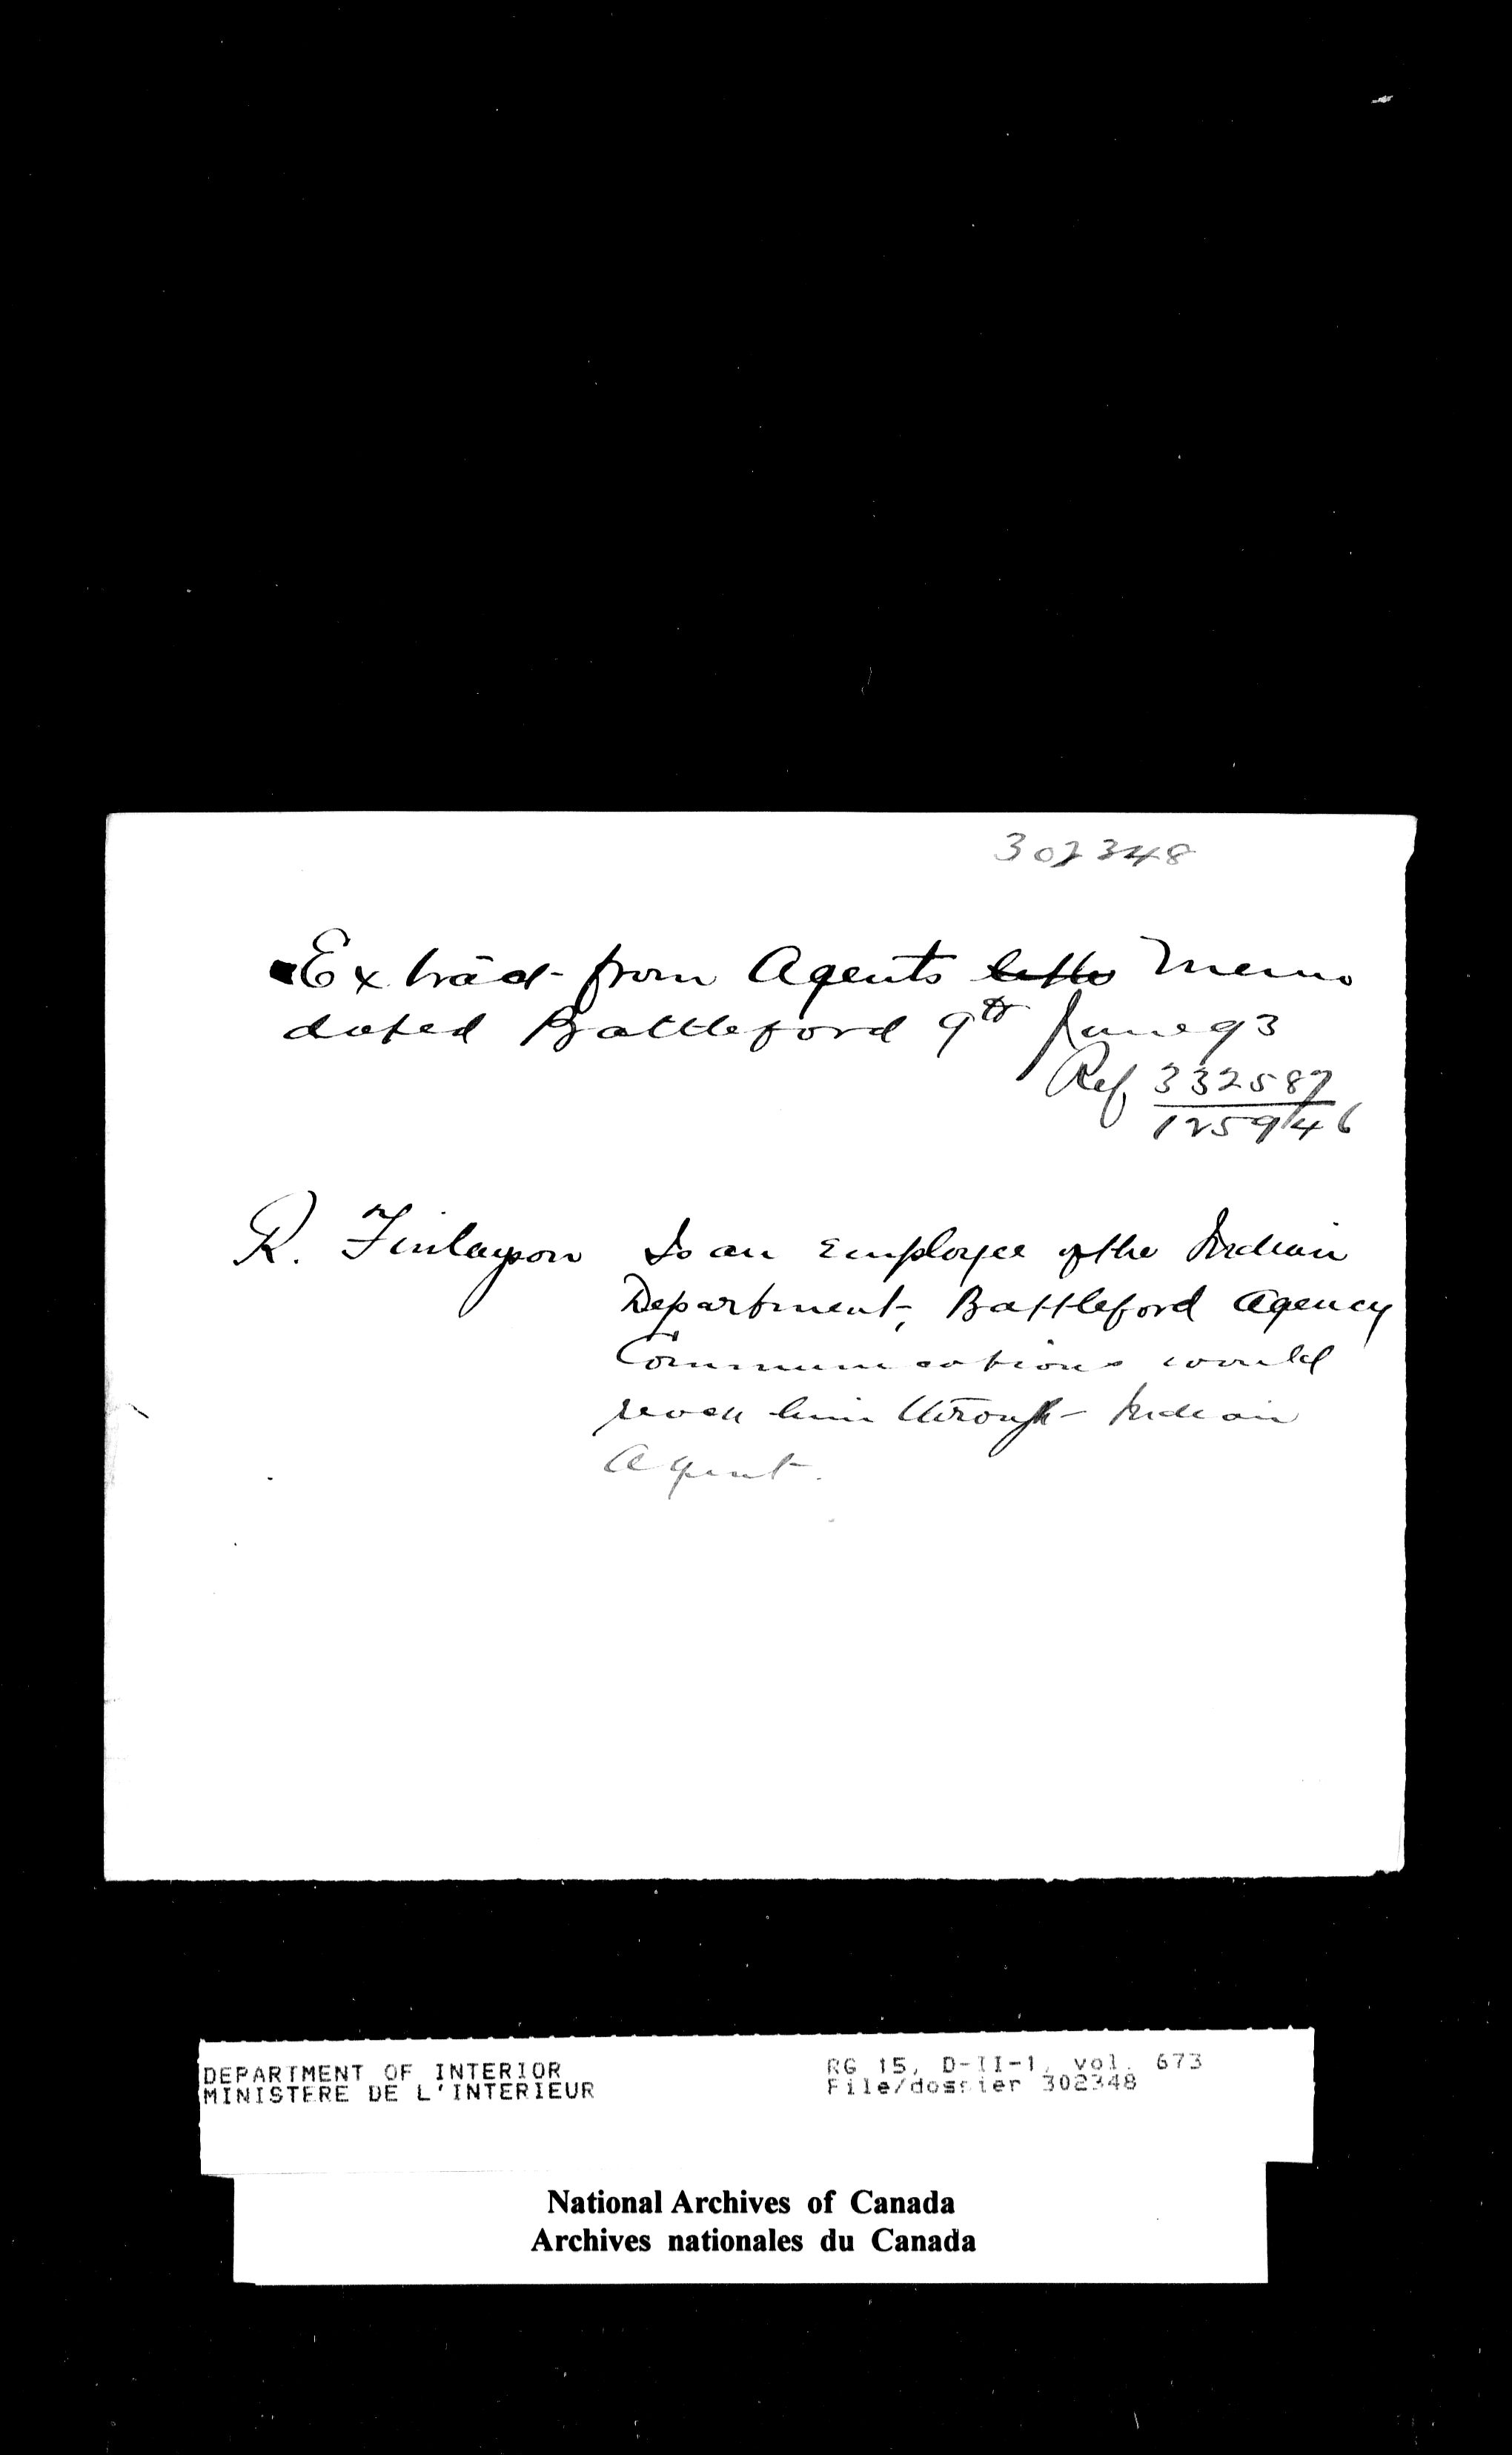 302348
Extract from Agents letter Memo
dated Battleford 9th June 93
Ref 332587
125946
R. Finlayson Is an Employee of the Indian
Department, Battleford Agency
Communications would
reach him through Indian
Agent.
DEPARTMENT OF INTERIOR
MINISTERE DE L'INTERIEUR
RG 15, D-II-1, vol. 673
File/dossier 302348
National Archives of Canada
Archives nationales du Canada